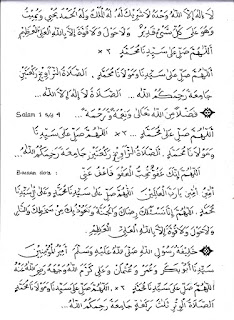 لَا إِلٰهَ إِلَّا اللّٰهُ وَحْدَهُ لَا شَرِيْكَ لَهُ، لَهُ الْمُلْكُ وَلَهُ الْحَمْدُ يُحْيِيْ وَيُمِيْتُ
وَهُوَ عَلَى كُلِّ شَيْئٍ قَدِيْرٌ وَلَا حَوْلَ وَلَا قُوَّةَ إِلَّا بِاللّٰهِ الْعَلِيِّ الْعَظِيْمِ
اَللّٰهُمَّ صَلِّ عَلَى سَيِّدِنَا مُحَمَّدٍ ×٢
اَللّٰهُمَّ صَلِّ عَلَى سَيِّدِنَا وَمَوْلَانَا مُحَمَّدٍ. اَلصَّلَاةَ التَّرَاوِيْحِ رَكْعَتَيْنِ
جَامِعَةً رَحِمَكُمُ اللّٰهُ ... اَلصَّلَاةَ لَا إِلٰهَ إِلَّا اللّٰهُ.
Salam فَضْلًا مِنَ اللّٰهِ تَعَالَى وَنِعْمَةً وَرَحْمَةً...
اَللّٰهُمَّ صَلِّ عَلَى سَيِّدِنَا مُحَمَّدٍ ... ×٢ اَللّٰهُمَّ صَلِّ عَلَى سَيِّدِنَا
وَمَوْلَانَا مُحَمَّدٍ. اَلصَّلَاةَ التَّرَاوِيْحِ رَكْعَتَيْنِ جَامِعَةً رَحِمَكُمُ اللّٰهُ...
اَللّٰهُمَّ إِنَّكَ عَفُوٌّ تُحِبُّ الْعَفْوَ فَاعْفُ عَنِّيْ
يَا رَبَّ الْعَالَمِيْنَ اَللّٰهُمَّ صَلِّ عَلَى سَيِّدِنَا مُحَمَّدٍ وَعَلَى سَيِّدِنَا
مُحَمَّدٍ اَللّٰهُمَّ إِنَّا نَسْئَلُكَ رِضَاكَ وَالْجَنَّةَ وَنَعُوْذُ بِكَ مِنْ سَخَطِكَ وَالنَّارِ
وَلَا حَوْلَ وَلَا قُوَّةَ إِلَّا بِاللّٰهِ الْعَلِيِّ الْعَظِيْمِ
خَلِيْفَةُ رَسُوْلِ اللّٰهِ صَلَّى اللّٰهُ عَلَيْهِ وَسَلَّمَ أَمِيْرُ الْمُؤْمِنِيْنَ
سَيِّدُنَا أَبُوْ بَكَرٍ وَعُمَرُ وَعُثْمَانُ وَعَلِيٌّ كَرَّمَ اللّٰهُ وَجْهَهُ رَضِيَ اللّٰهُ عَنْهُ
اَللّٰهُمَّ صَلِّ عَلَى سَيِّدِنَا مُحَمَّدٍ ... ×٢ اَللّٰهُمَّ صَلِّ عَلَى سَيِّدِنَا وَمَوْلَانَا مُحَمَّدٍ
اَلصَّلَاةَ الْوِتْرِ ثَلَاثَ رَكْعَةٍ جَامِعَةً رَحِمَكُمُ اللّٰهُ.